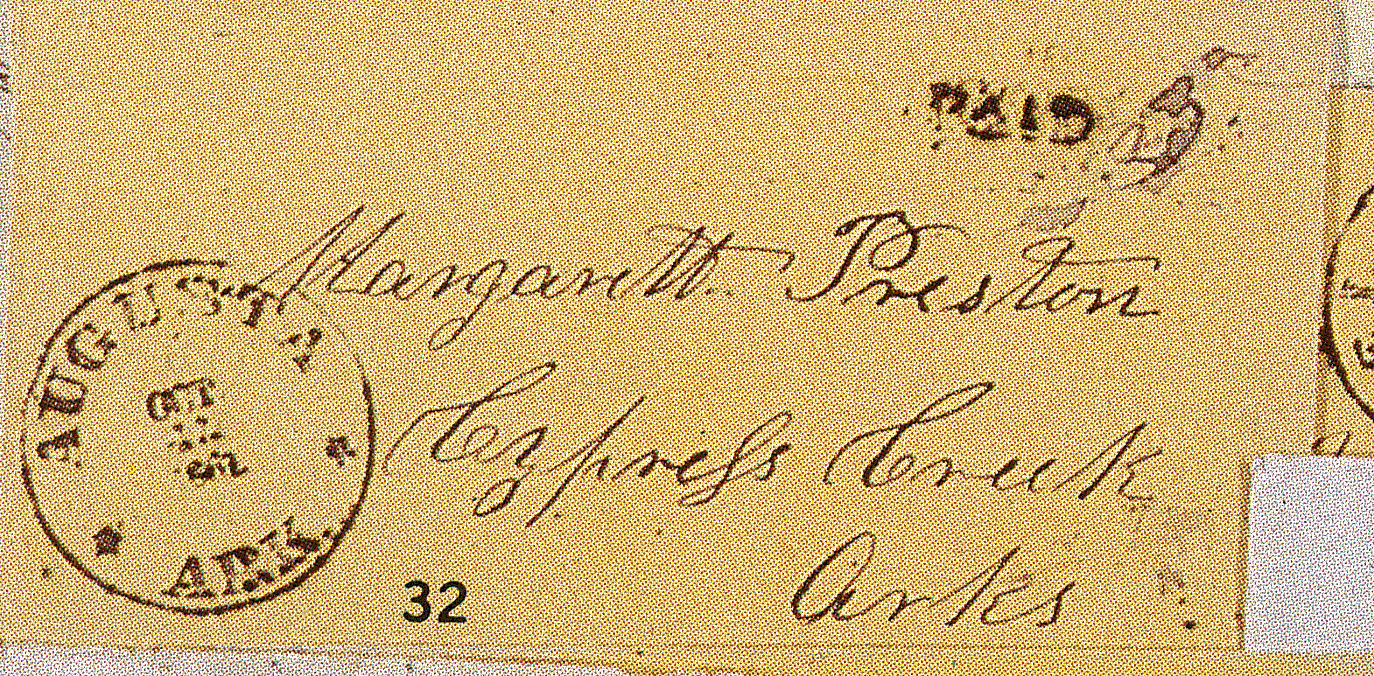 PAID
Margarett Preston
AUGUSTA
OCT
Cypress Creek
ARK.
32
Arks